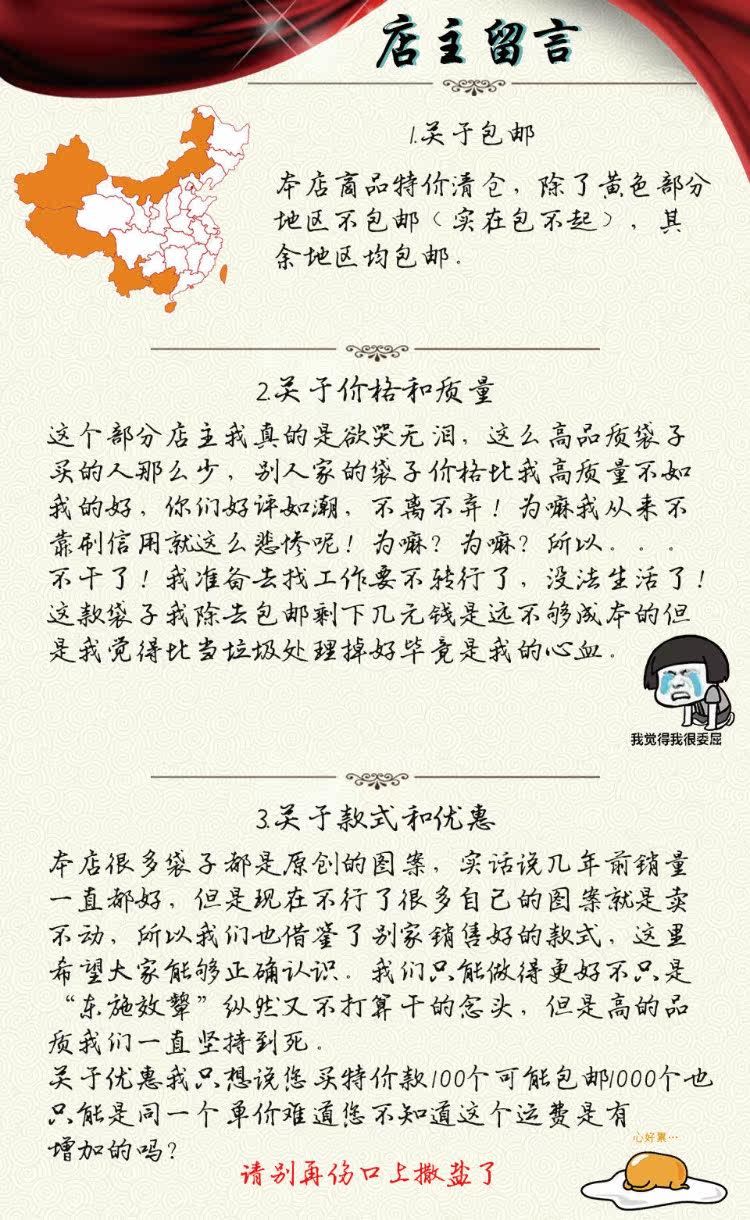 店主留言
1.关于包邮
本店商品特价清仓，除了黄色部分
地区不包邮（实在包不起），其
余地区均包邮.
2.关于价格和质量
这个部分店主我真的是欲哭无泪，这么高品质袋子
买的人那么少，别人家的袋子价格比我高质量不如
我的好，你们好评如潮，不离不弃！为嘛我从来不
靠刷信用就这么悲惨呢！为嘛？为嘛？所以...
不干了！我准备去找工作要不转行了，没法生活了！
这款袋子我除去包邮剩下几元钱是远不够成本的但
是我觉得比当垃圾处理掉好毕竟是我的心血.
我觉得我很委屈
3.关于款式和优惠
本店很多袋子都是原创的图案，实话说几年前销量
一直都好，但是现在不行了很多自己的图案就是卖
不动，所以我们也借鉴了别家销售好的款式，这里
希望大家能够正确认识.我们只能做得更好不只是
“东施效颦”纵然又不打算干的念头，但是高的品
质我们一直坚持到死.
关于优惠我只想说您买特价款100个可能包邮1000个也
只能是同一个单价难道您不知道这个运费是有
增加的吗？
心好累…
请别再伤口上撒盐了